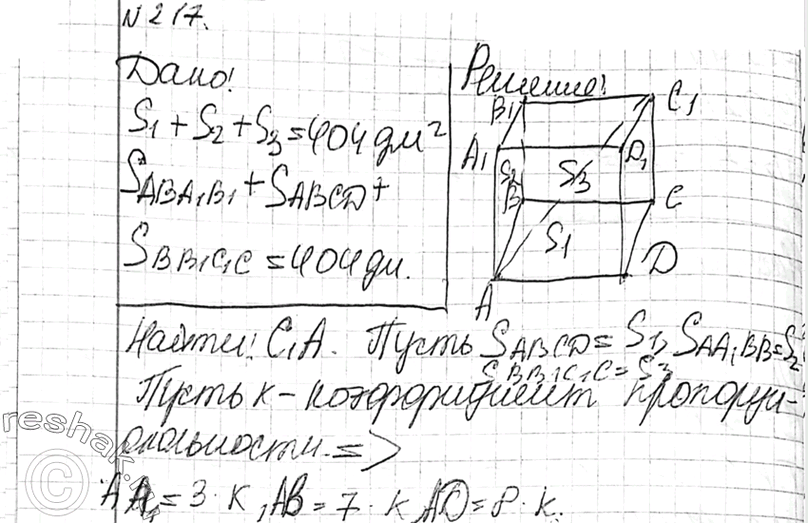 N 217.
Дано:
S1 + S2 + S3 = 404 дм²
SABA1B1 + SABCD +
SBB1C1C = 404 дм.
Решение:
B1 C1
A1 D1
S2 S3
B C
S1
A D
Найти: C1A. Пусть SABCD = S1, SAA1BB = S2
SBB1C1C = S3
Пусть k - коэффициент пропорци-
ональности =>
AA1 = 3 · k, AB = 7 · k, AD = 8 · k.
reshak
©